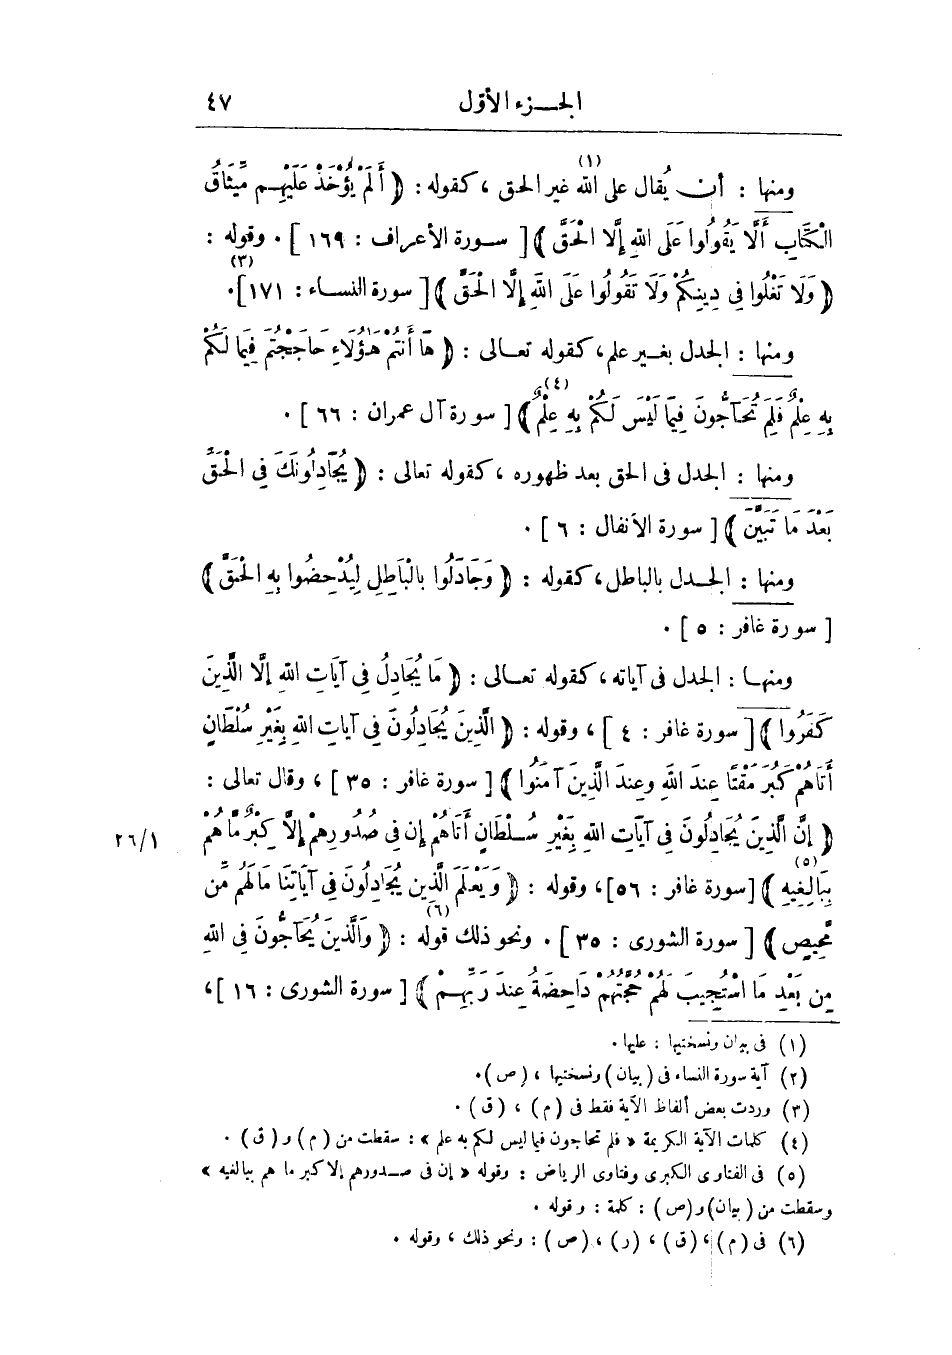 الجزء الأول ٤٧
ومنها : أن يُقال على الله(١) غير الحق ، كقوله : ﴿ أَلَمْ يُؤْخَذْ عَلَيْهِم مِّيثَاقُ
الْكِتَابِ أَلَّا يَقُولُوا عَلَى اللهِ إِلَّا الْحَقَّ ﴾ [ سورة الأعراف : ١٦٩ ] . وقوله :
﴿ وَلَا تَغْلُوا فِي دِينِكُمْ وَلَا تَقُولُوا عَلَى اللهِ إِلَّا الْحَقَّ ﴾ [ سورة النساء : ١٧١ ](٣).
ومنها : الجدل بغير علم ، كقوله تعالى : ﴿ هَا أَنتُمْ هَؤُلَاءِ حَاجَجْتُمْ فِيمَا لَكُمْ
بِهِ عِلْمٌ فَلِمَ تُحَآجُّونَ فِيمَا لَيْسَ لَكُمْ بِهِ عِلْمٌ(٤) ﴾ [ سورة آل عمران : ٦٦ ] .
ومنها : الجدل فى الحق بعد ظهوره ، كقوله تعالى : ﴿ يُجَادِلُونَكَ فِي الْحَقِّ
بَعْدَ مَا تَبَيَّنَ ﴾ [ سورة الأنفال : ٦ ] .
ومنها : الجدل بالباطل ، كقوله : ﴿ وَجَادَلُوا بِالْبَاطِلِ لِيُدْحِضُوا بِهِ الْحَقَّ ﴾
[ سورة غافر : ٥ ] .
ومنها : الجدل فى آياته ، كقوله تعالى : ﴿ مَا يُجَادِلُ فِي آيَاتِ اللهِ إِلَّا الَّذِينَ
كَفَرُوا ﴾ [ سورة غافر : ٤ ] ، وقوله : ﴿ الَّذِينَ يُجَادِلُونَ فِي آيَاتِ اللهِ بِغَيْرِ سُلْطَانٍ
أَتَاهُمْ كَبُرَ مَقْتًا عِندَ اللهِ وعِندَ الَّذِينَ آمَنُوا ﴾ [ سورة غافر : ٣٥ ] ، وقال تعالى :
﴿ إِنَّ الَّذِينَ يُجَادِلُونَ فِي آيَاتِ اللهِ بِغَيْرِ سُلْطَانٍ أَتَاهُمْ إِن فِي صُدُورِهِمْ إِلَّا كِبْرٌ مَّا هُم ٢٦/١
بِبَالِغِيهِ(٥) ﴾ [سورة غافر : ٥٦] ، وقوله : ﴿ وَيَعْلَمَ الَّذِينَ يُجَادِلُونَ فِي آيَاتِنَا مَا لَهُم مِّن
مَّحِيصٍ ﴾ [ سورة الشورى : ٣٥ ] . ونحو ذلك قوله(٦) : ﴿ وَالَّذِينَ يُحَآجُّونَ فِي اللهِ
مِن بَعْدِ مَا اسْتُجِيبَ لَهُمْ حُجَّتُهُمْ دَاحِضَةٌ عِندَ رَبِّهِمْ ﴾ [ سورة الشورى : ١٦ ] ،
(١) فى بيان ونسختيها : عليها .
(٢) آية سورة النساء فى (بيان) ونسختيها ، (ص) .
(٣) وردت بعض ألفاظ الآية فقط فى (م) ، (ق) .
(٤) كلمات الآية الكريمة « فلم تحاجون فيما ليس لكم به علم » : سقطت من (م) و (ق) .
(٥) فى الفتاوى الكبرى وفتاوى الرياض : وقوله « إن فى صدورهم إلا كبر ما هم ببالغيه »
وسقطت من (بيان) و(ص) : كلمة : وقوله .
(٦) فى (م) ، (ق) ، (ر) ، (ص) : ونحو ذلك ، وقوله .